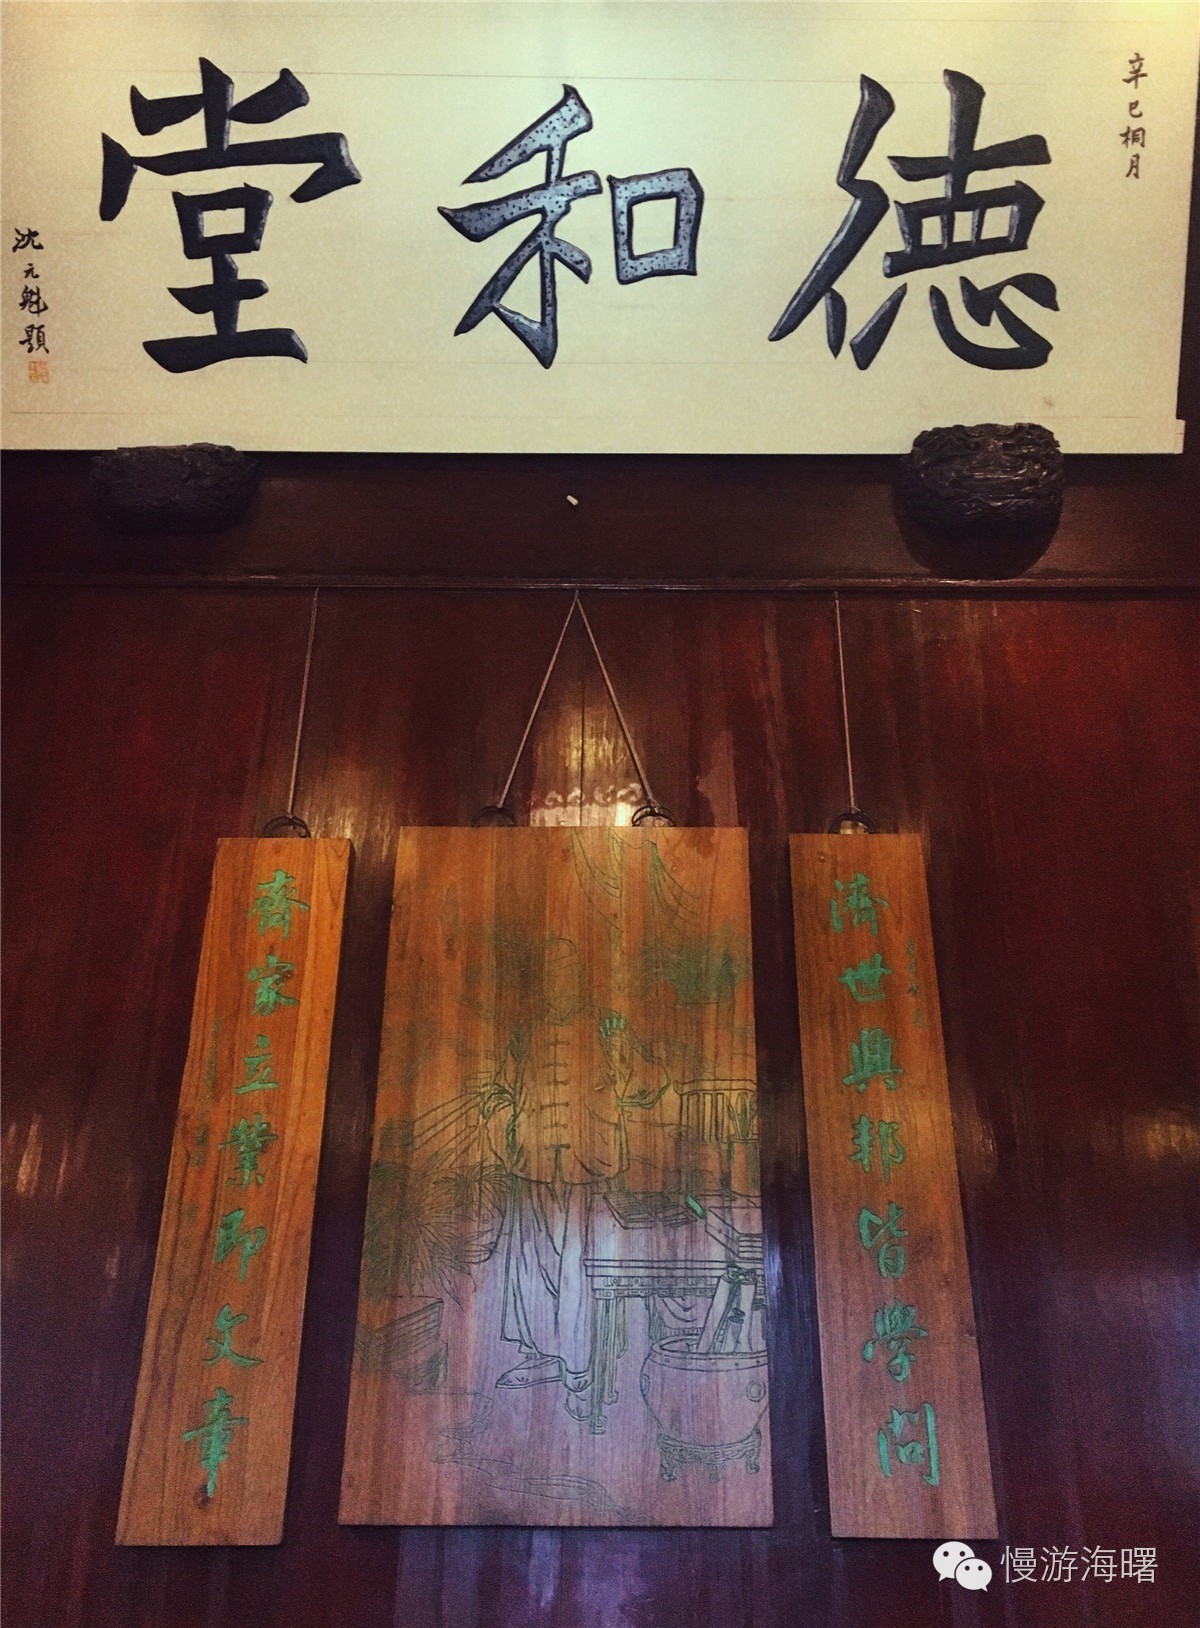 辛巳桐月
徳和堂
沈元魁題
濟世興邦皆學問
齊家立業即文章
慢游海曙